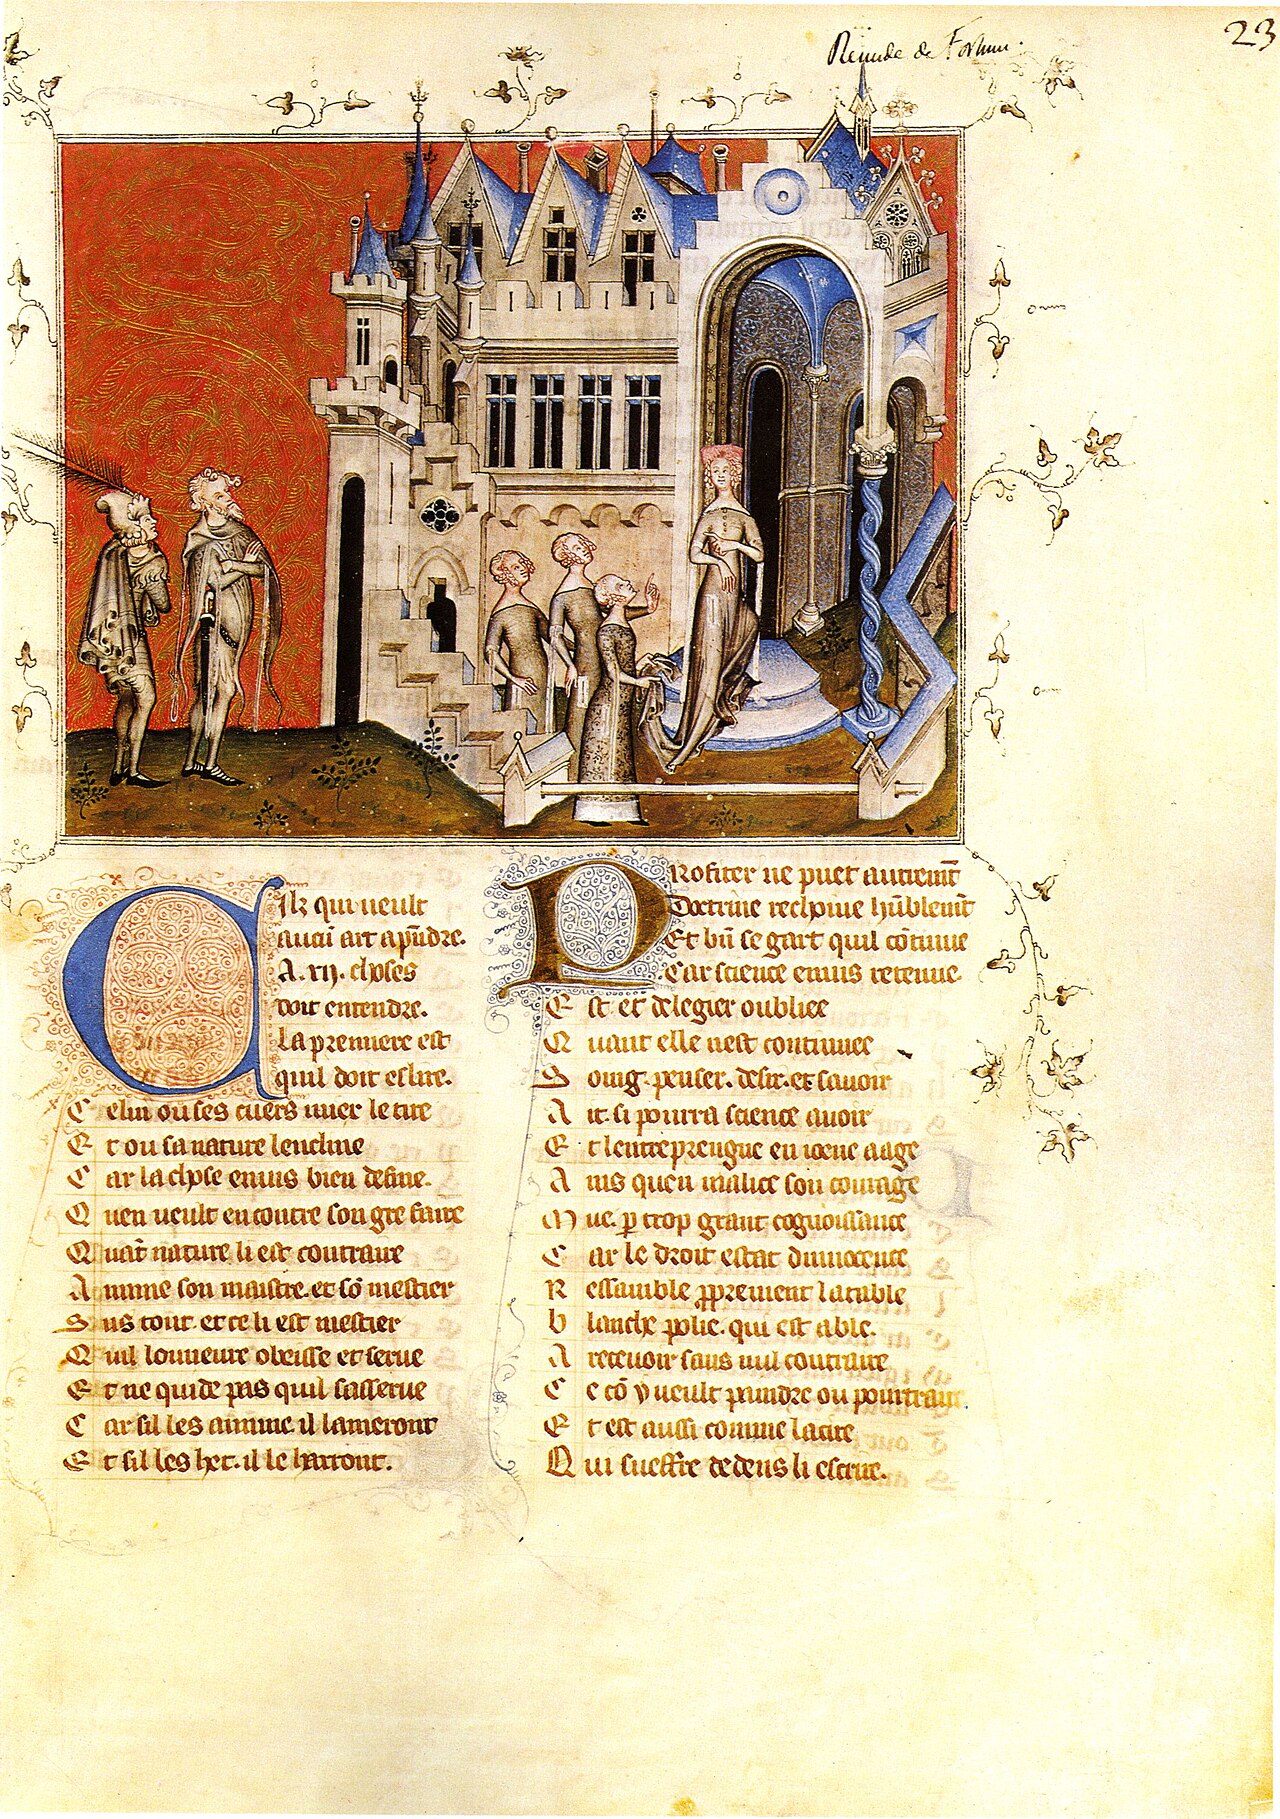 Remede de Fortune.
23
Cilz qui veult
aucun art apñdre.
A .xij. choses
doit entendre.
La premiere est
quil doit eslire.
Celui ou ses cuers mier le tire
Et ou sa nature lencline
Car la chose enuis bien define.
Quen veult encontre son gre faire
Quãt nature li est contraire
Aimme son maistre. et sõ mestier
Sus tout. et ce li est mestier
Quil lonneure obeisse et serue
Et ne quide pas quil sasserue
Car sil les aimme il lameront
Et sil les het. il le harront.
Profiter ne puet autremẽt
Doctrine rechoiue hũblemẽt
Et bñ se gart quil cõtinue
Car science enuis retenue.
Est et de legier oubliee
Quant elle nest continuee
Soing. penser. desir. et sauoir
Ait. si pourra science auoir
Et lentreprengne en ioene aage
Ains quen malice son courage
Mue. p trop grant cognoissance
Car le droit estat dinnocence
Ressamble ppprement la table
blanche polie. qui est able.
A recevoir sans nul contraire
Ce cõ y veult paindre ou pourtraire
Et est aussi comme la cire
Qui sueffre dedens li escrire.